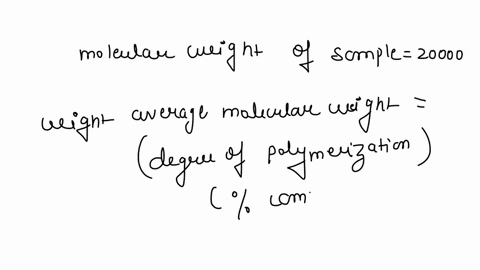 molecular weight of sample = 20000
weight average molecular weight =
(degree of polymerization)
( % com